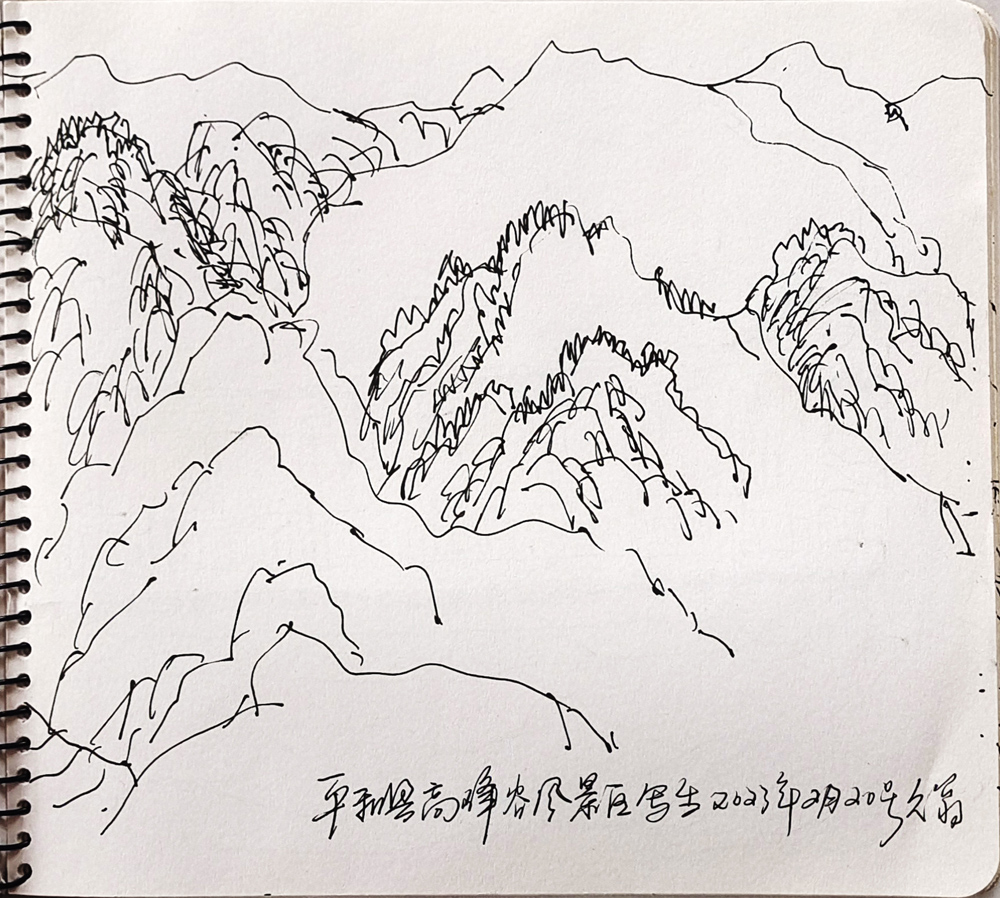 平和县高峰谷风景区写生2023年2月20号久翁